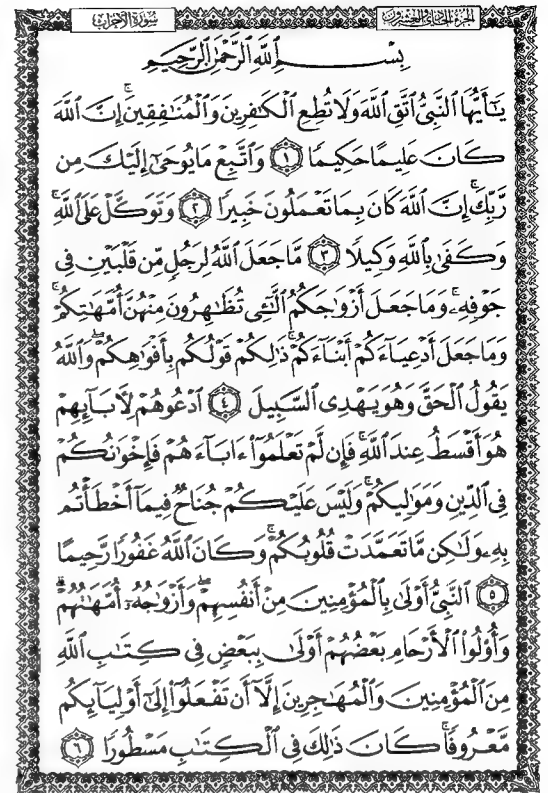 الجزء الحادي والعشرون سورة الأحزاب
بِسْمِ ٱللَّهِ ٱلرَّحْمَٰنِ ٱلرَّحِيمِ
يَٰٓأَيُّهَا ٱلنَّبِىُّ ٱتَّقِ ٱللَّهَ وَلَا تُطِعِ ٱلْكَٰفِرِينَ وَٱلْمُنَٰفِقِينَ ۚ إِنَّ ٱللَّهَ
كَانَ عَلِيمًا حَكِيمًا ١ وَٱتَّبِعْ مَا يُوحَىٰٓ إِلَيْكَ مِن
رَّبِّكَ ۚ إِنَّ ٱللَّهَ كَانَ بِمَا تَعْمَلُونَ خَبِيرًا ٢ وَتَوَكَّلْ عَلَى ٱللَّهِ ۚ
وَكَفَىٰ بِٱللَّهِ وَكِيلًا ٣ مَّا جَعَلَ ٱللَّهُ لِرَجُلٍ مِّن قَلْبَيْنِ فِى
جَوْفِهِۦ ۚ وَمَا جَعَلَ أَزْوَٰجَكُمُ ٱلَّٰٓـِٔى تُظَٰهِرُونَ مِنْهُنَّ أُمَّهَٰتِكُمْ ۚ
وَمَا جَعَلَ أَدْعِيَآءَكُمْ أَبْنَآءَكُمْ ۚ ذَٰلِكُمْ قَوْلُكُم بِأَفْوَٰهِكُمْ ۖ وَٱللَّهُ
يَقُولُ ٱلْحَقَّ وَهُوَ يَهْدِى ٱلسَّبِيلَ ٤ ٱدْعُوهُمْ لِءَابَآئِهِمْ
هُوَ أَقْسَطُ عِندَ ٱللَّهِ ۚ فَإِن لَّمْ تَعْلَمُوٓا۟ ءَابَآءَهُمْ فَإِخْوَٰنُكُمْ
فِى ٱلدِّينِ وَمَوَٰلِيكُمْ ۚ وَلَيْسَ عَلَيْكُمْ جُنَاحٌ فِيمَآ أَخْطَأْتُم
بِهِۦ وَلَٰكِن مَّا تَعَمَّدَتْ قُلُوبُكُمْ ۚ وَكَانَ ٱللَّهُ غَفُورًا رَّحِيمًا
٥ ٱلنَّبِىُّ أَوْلَىٰ بِٱلْمُؤْمِنِينَ مِنْ أَنفُسِهِمْ ۖ وَأَزْوَٰجُهُۥٓ أُمَّهَٰتُهُمْ ۗ
وَأُو۟لُوا۟ ٱلْأَرْحَامِ بَعْضُهُمْ أَوْلَىٰ بِبَعْضٍ فِى كِتَٰبِ ٱللَّهِ
مِنَ ٱلْمُؤْمِنِينَ وَٱلْمُهَٰجِرِينَ إِلَّآ أَن تَفْعَلُوٓا۟ إِلَىٰٓ أَوْلِيَآئِكُم
مَّعْرُوفًا ۚ كَانَ ذَٰلِكَ فِى ٱلْكِتَٰبِ مَسْطُورًا ٦